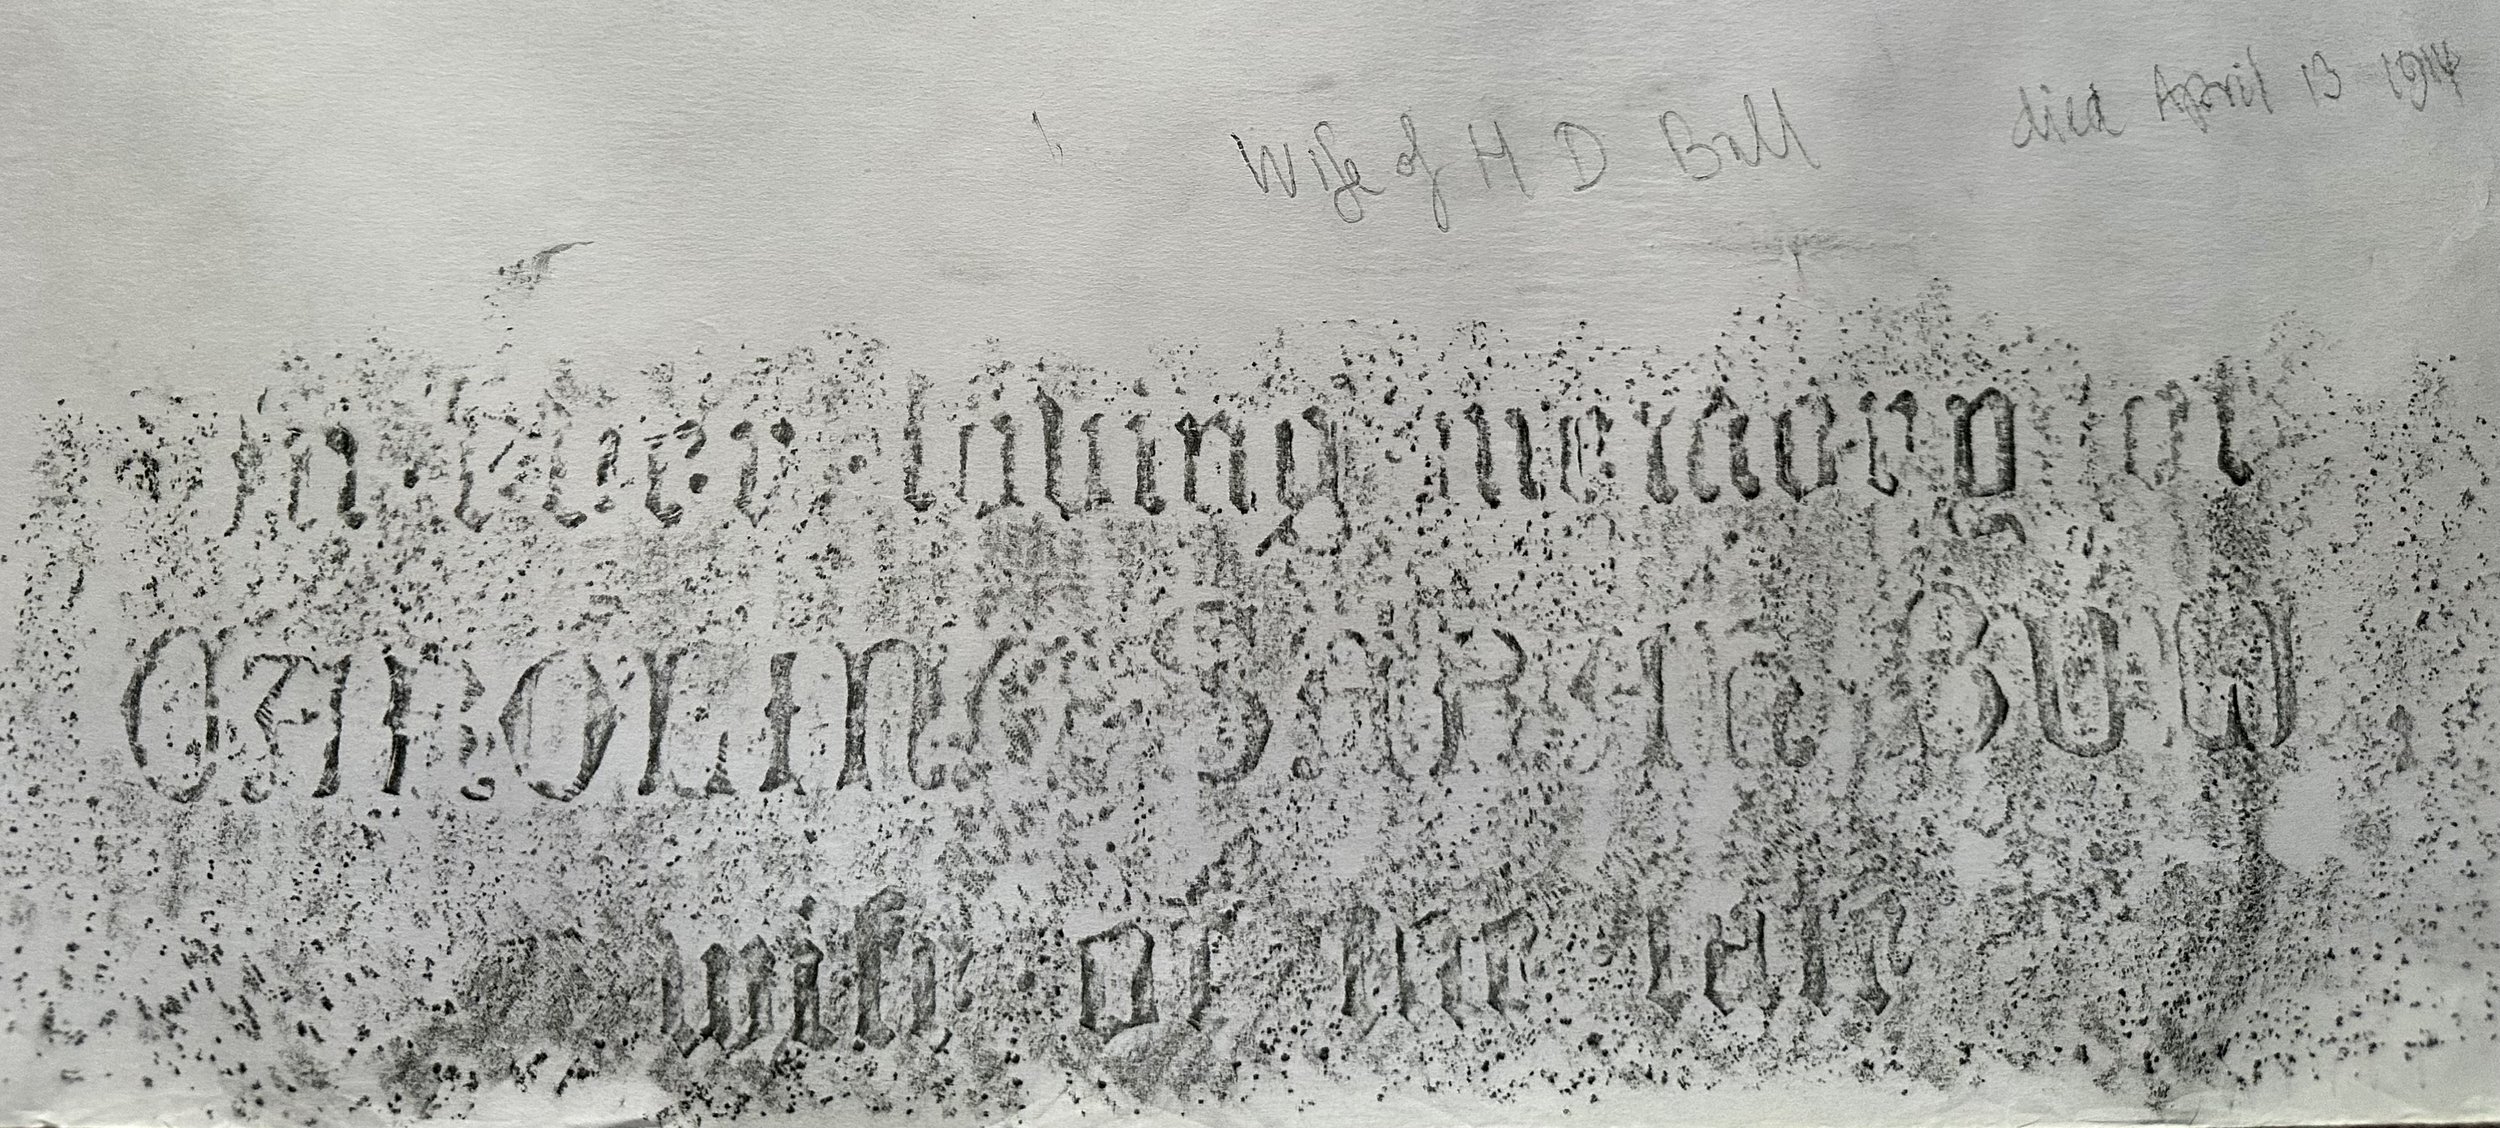 Wife of H D Ball
died April 13 1914
In ever loving memory of
CAROLINE SARAH
wife of the late